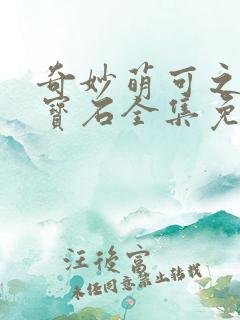 奇妙萌可之
寶石全集免
汪後富
未经同意禁止转载